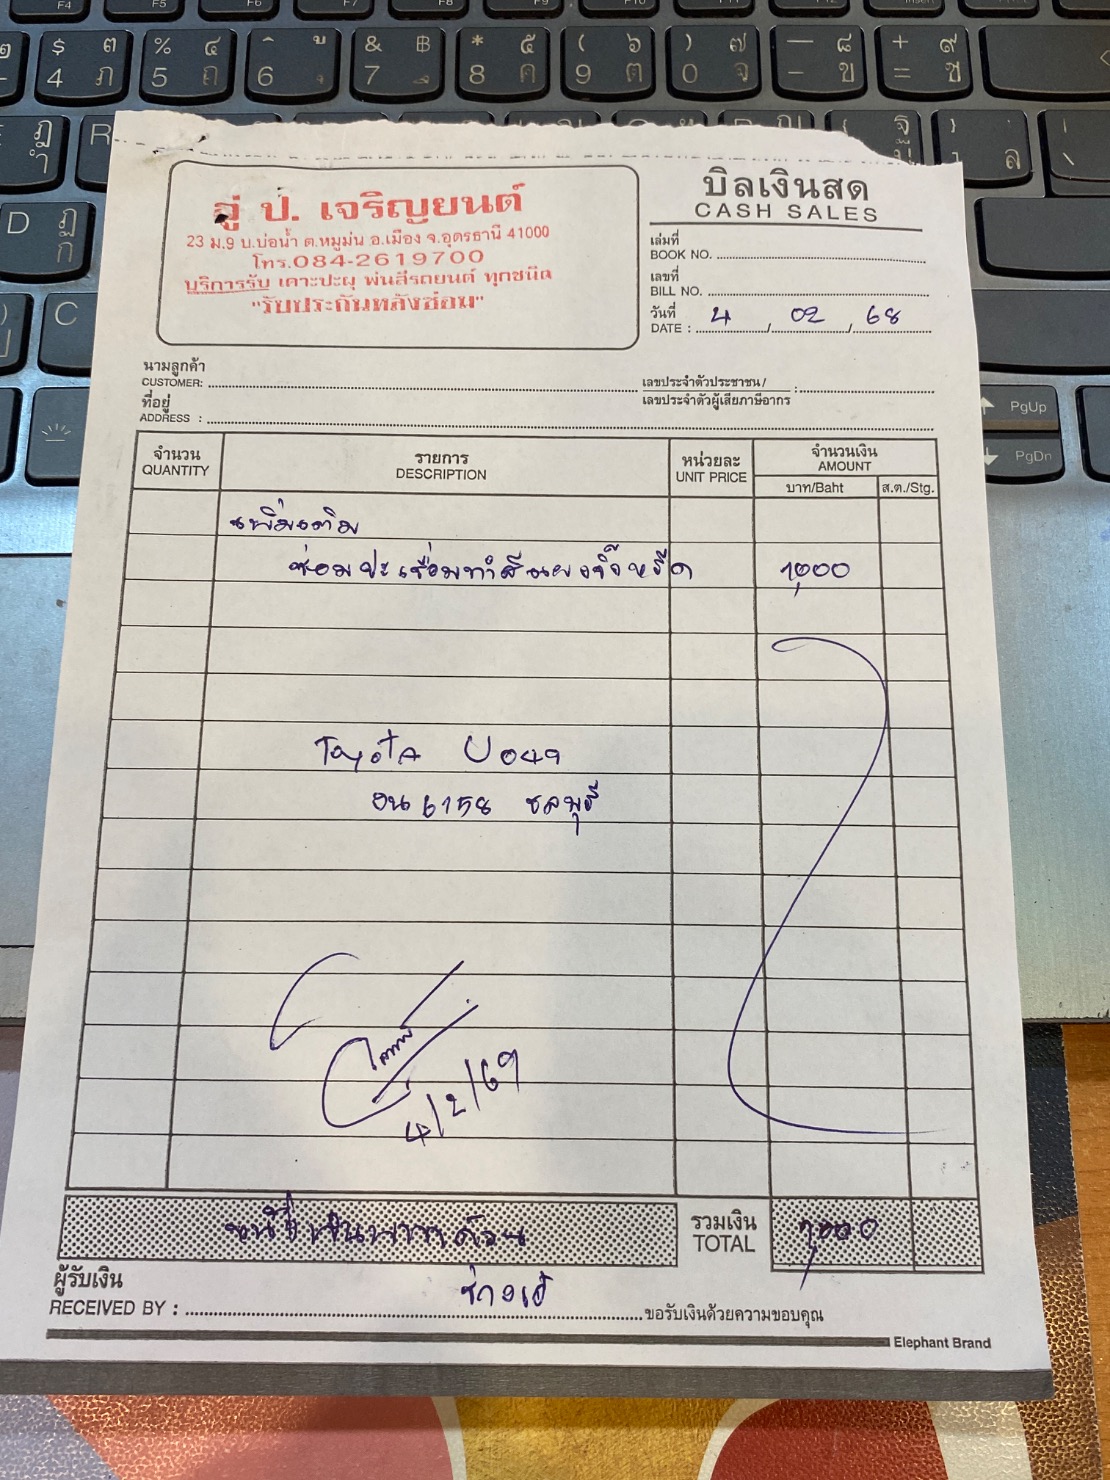 บิลเงินสด
CASH SALES
อู่ ป. เจริญยนต์
23 ม.9 บ.บ่อน้ำ ต.หมูม่น อ.เมือง จ.อุดรธานี 41000
โทร.084-2619700
บริการรับ เคาะปะผุ พ่นสีรถยนต์ ทุกชนิด
"รับประกันหลังซ่อม"
เล่มที่
BOOK NO.
เลขที่
BILL NO.
วันที่
DATE : 4 / 02 / 68
นามลูกค้า
CUSTOMER:
เลขประจำตัวประชาชน/ :
เลขประจำตัวผู้เสียภาษีอากร
ที่อยู่
ADDRESS :
จำนวน รายการ หน่วยละ จำนวนเงิน
QUANTITY DESCRIPTION UNIT PRICE AMOUNT
บาท/Baht ส.ต./Stg.
เพิ่มเติม
ซ่อมปะเชื่อมทำสีแผงจิ้งหรีด 1,000
Toyota
6158 ชลบุรี
4/2/69
หนึ่งพันบาทถ้วน รวมเงิน 1,000
TOTAL
ผู้รับเงิน
RECEIVED BY : ขอรับเงินด้วยความขอบคุณ
Elephant Brand